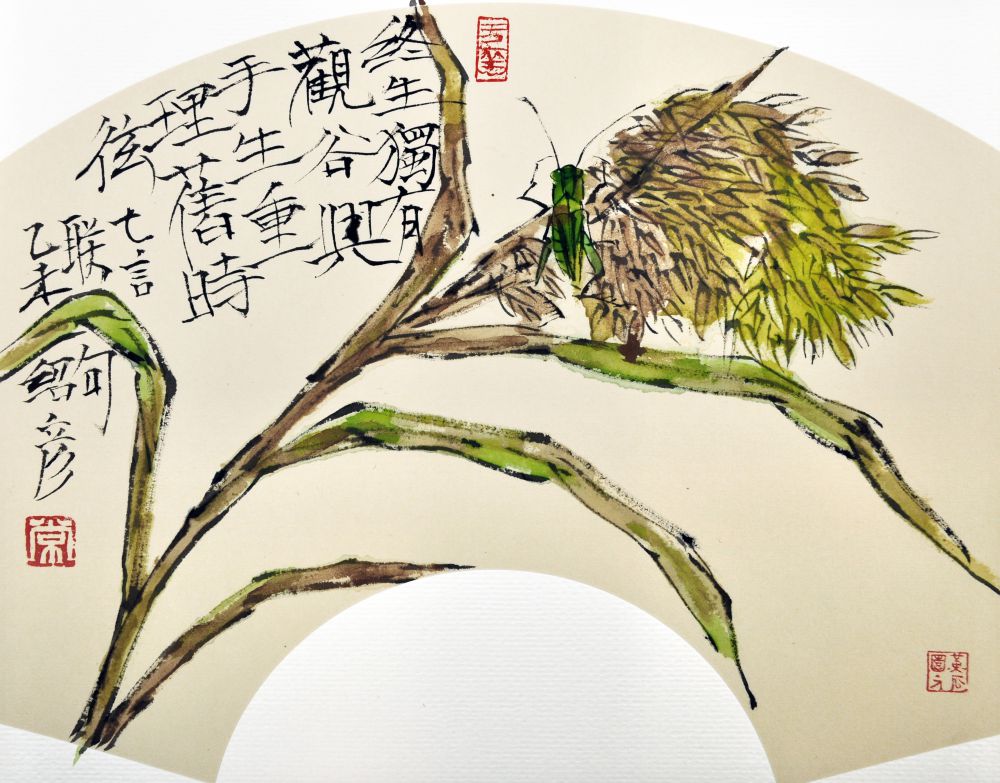 終生獨有
觀谷興
手生重
理舊時
弦
七言
联句
乙未
紹彦